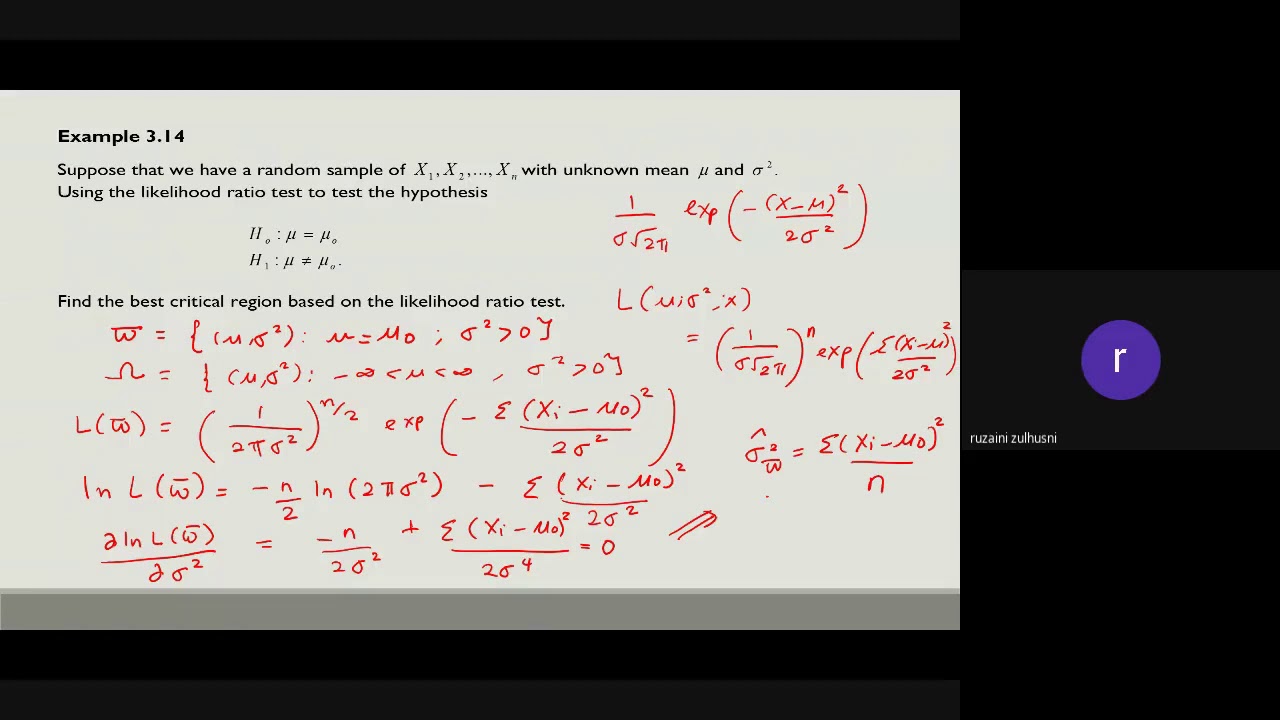 Example 3.14
Suppose that we have a random sample of X₁, X₂, ..., Xₙ with unknown mean μ and σ².
Using the likelihood ratio test to test the hypothesis
H₀ : μ = μ₀
H₁ : μ ≠ μ₀.
Find the best critical region based on the likelihood ratio test.
1/(σ√2π) exp(-(x-μ)²/2σ²)
L(μ,σ²;x)
= (1/(σ√2π))ⁿ exp(Σ(xi-μ)²/2σ²)
ω̅ = {(μ,σ²): μ=μ₀ ; σ²>0}
Ω = {(μ,σ²): -∞<μ<∞, σ²>0}
L(ω̅) = (1/(2πσ²))^(n/2) exp(-Σ(xi-μ₀)²/2σ²)
ln L(ω̅) = -n/2 ln(2πσ²) - Σ(xi-μ₀)²/2σ²
∂ln L(ω̅)/∂σ² = -n/2σ² + Σ(xi-μ₀)²/2σ⁴ = 0
σ̂²_ω̅ = Σ(xi-μ₀)²/n
r
ruzaini zulhusni